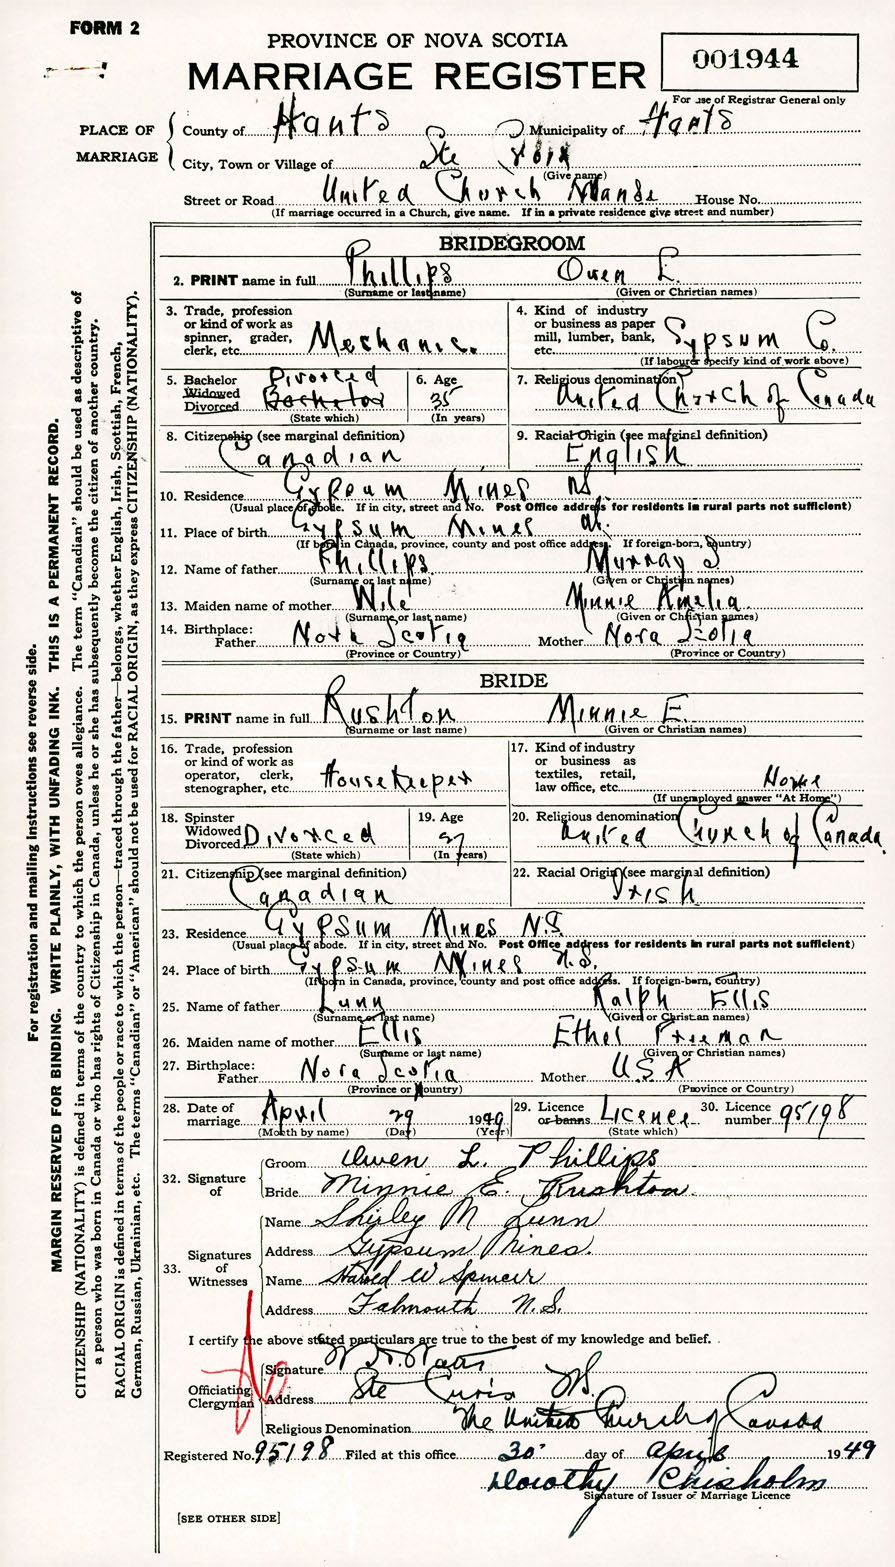 FORM 2
PROVINCE OF NOVA SCOTIA
MARRIAGE REGISTER
001944
For use of Registrar General only
PLACE OF MARRIAGE
County of Hants Municipality of Hants
City, Town or Village of Ste Croix
(Give name)
Street or Road United Church Manse House No.
(If marriage occurred in a Church, give name. If in a private residence give street and number)
BRIDEGROOM
2. PRINT name in full Phillips Owen L.
(Surname or last name) (Given or Christian names)
3. Trade, profession or kind of work as spinner, grader, clerk, etc. Mechanic.
4. Kind of industry or business as paper mill, lumber, bank, etc. Gypsum Co.
(If labourer specify kind of work above)
5. Bachelor Widowed Divorced Divorced Bachelor
(State which)
6. Age 35
(In years)
7. Religious denomination United Church of Canada
8. Citizenship (see marginal definition) Canadian
9. Racial Origin (see marginal definition) English
10. Residence Gypsum Mines N.S.
(Usual place of abode. If in city, street and No. Post Office address for residents in rural parts not sufficient)
11. Place of birth Gypsum Mines
(If born in Canada, province, county and post office address. If foreign-born, country)
12. Name of father Phillips Murray S
(Surname or last name) (Given or Christian names)
13. Maiden name of mother Wile Minnie Amelia
(Surname or last name) (Given or Christian names)
14. Birthplace: Father Nova Scotia Mother Nova Scotia
(Province or Country) (Province or Country)
BRIDE
15. PRINT name in full Rushton Minnie E.
(Surname or last name) (Given or Christian names)
16. Trade, profession or kind of work as operator, clerk, stenographer, etc. Housekeeper
17. Kind of industry or business as textiles, retail, law office, etc. Home
(If unemployed answer "At Home")
18. Spinster Widowed Divorced Divorced
(State which)
19. Age 27
(In years)
20. Religious denomination United Church of Canada.
21. Citizenship (see marginal definition) Canadian
22. Racial Origin (see marginal definition) Irish
23. Residence Gypsum Mines N.S.
(Usual place of abode. If in city, street and No. Post Office address for residents in rural parts not sufficient)
24. Place of birth Gypsum Mines N.S.
(If born in Canada, province, county and post office address. If foreign-born, country)
25. Name of father Lunn Ralph Ellis
(Surname or last name) (Given or Christian names)
26. Maiden name of mother Ellis Ethel Freeman
(Surname or last name) (Given or Christian names)
27. Birthplace: Father Nova Scotia Mother U.S.A
(Province or Country) (Province or Country)
28. Date of marriage April 29 1949
(Month by name) (Day) (Year)
29. Licence or banns Licence
(State which)
30. Licence number 95198
32. Signature of
Groom Owen L. Phillips
Bride Minnie E. Rushton.
33. Signatures of Witnesses
Name Shirley M Lunn
Address Gypsum Mines.
Name Harold W Spencer
Address Falmouth N.S.
I certify the above stated particulars are true to the best of my knowledge and belief.
Officiating Clergyman
Signature
Address Ste Croix N.S.
Religious Denomination The United Church of Canada
Registered No. 95198 Filed at this office 30 day of April 1949
Dorothy Chisholm
Signature of Issuer of Marriage Licence
[SEE OTHER SIDE]
For registration and mailing instructions see reverse side.
MARGIN RESERVED FOR BINDING. WRITE PLAINLY, WITH UNFADING INK. THIS IS A PERMANENT RECORD.
CITIZENSHIP (NATIONALITY) is defined in terms of the country to which the person owes allegiance. The term "Canadian" should be used as descriptive of
a person who was born in Canada or who has rights of Citizenship in Canada, unless he or she has subsequently become the citizen of another country.
RACIAL ORIGIN is defined in terms of the people or race to which the person—traced through the father—belongs, whether English, Irish, Scottish, French,
German, Russian, Ukrainian, etc. The terms "Canadian" or "American" should not be used for RACIAL ORIGIN, as they express CITIZENSHIP (NATIONALITY).